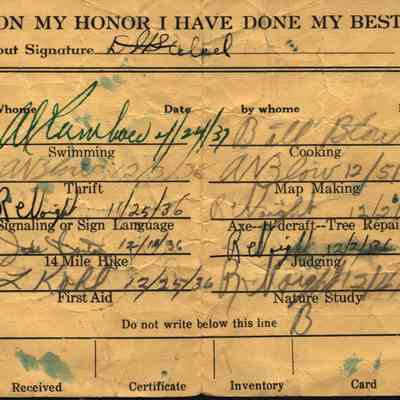 ON MY HONOR I HAVE DONE MY BEST
out Signature
Whom Date by whome
Al Rambow 4/24/37 Bill Blow
Swimming Cooking
A N Blow 12/5/36 A N Blow 12/5/
Thrift Map Making
R E Voight 11/25/36 Voight 12/2/
Signaling or Sign Language Axe--H'dcraft--Tree Repai
12/18/36 R E Voight 12/2/36
14 Mile Hike Judging
L Kohl 12/25/36 R Voight 12/1
First Aid Nature Study
Do not write below this line B
Received Certificate Inventory Card